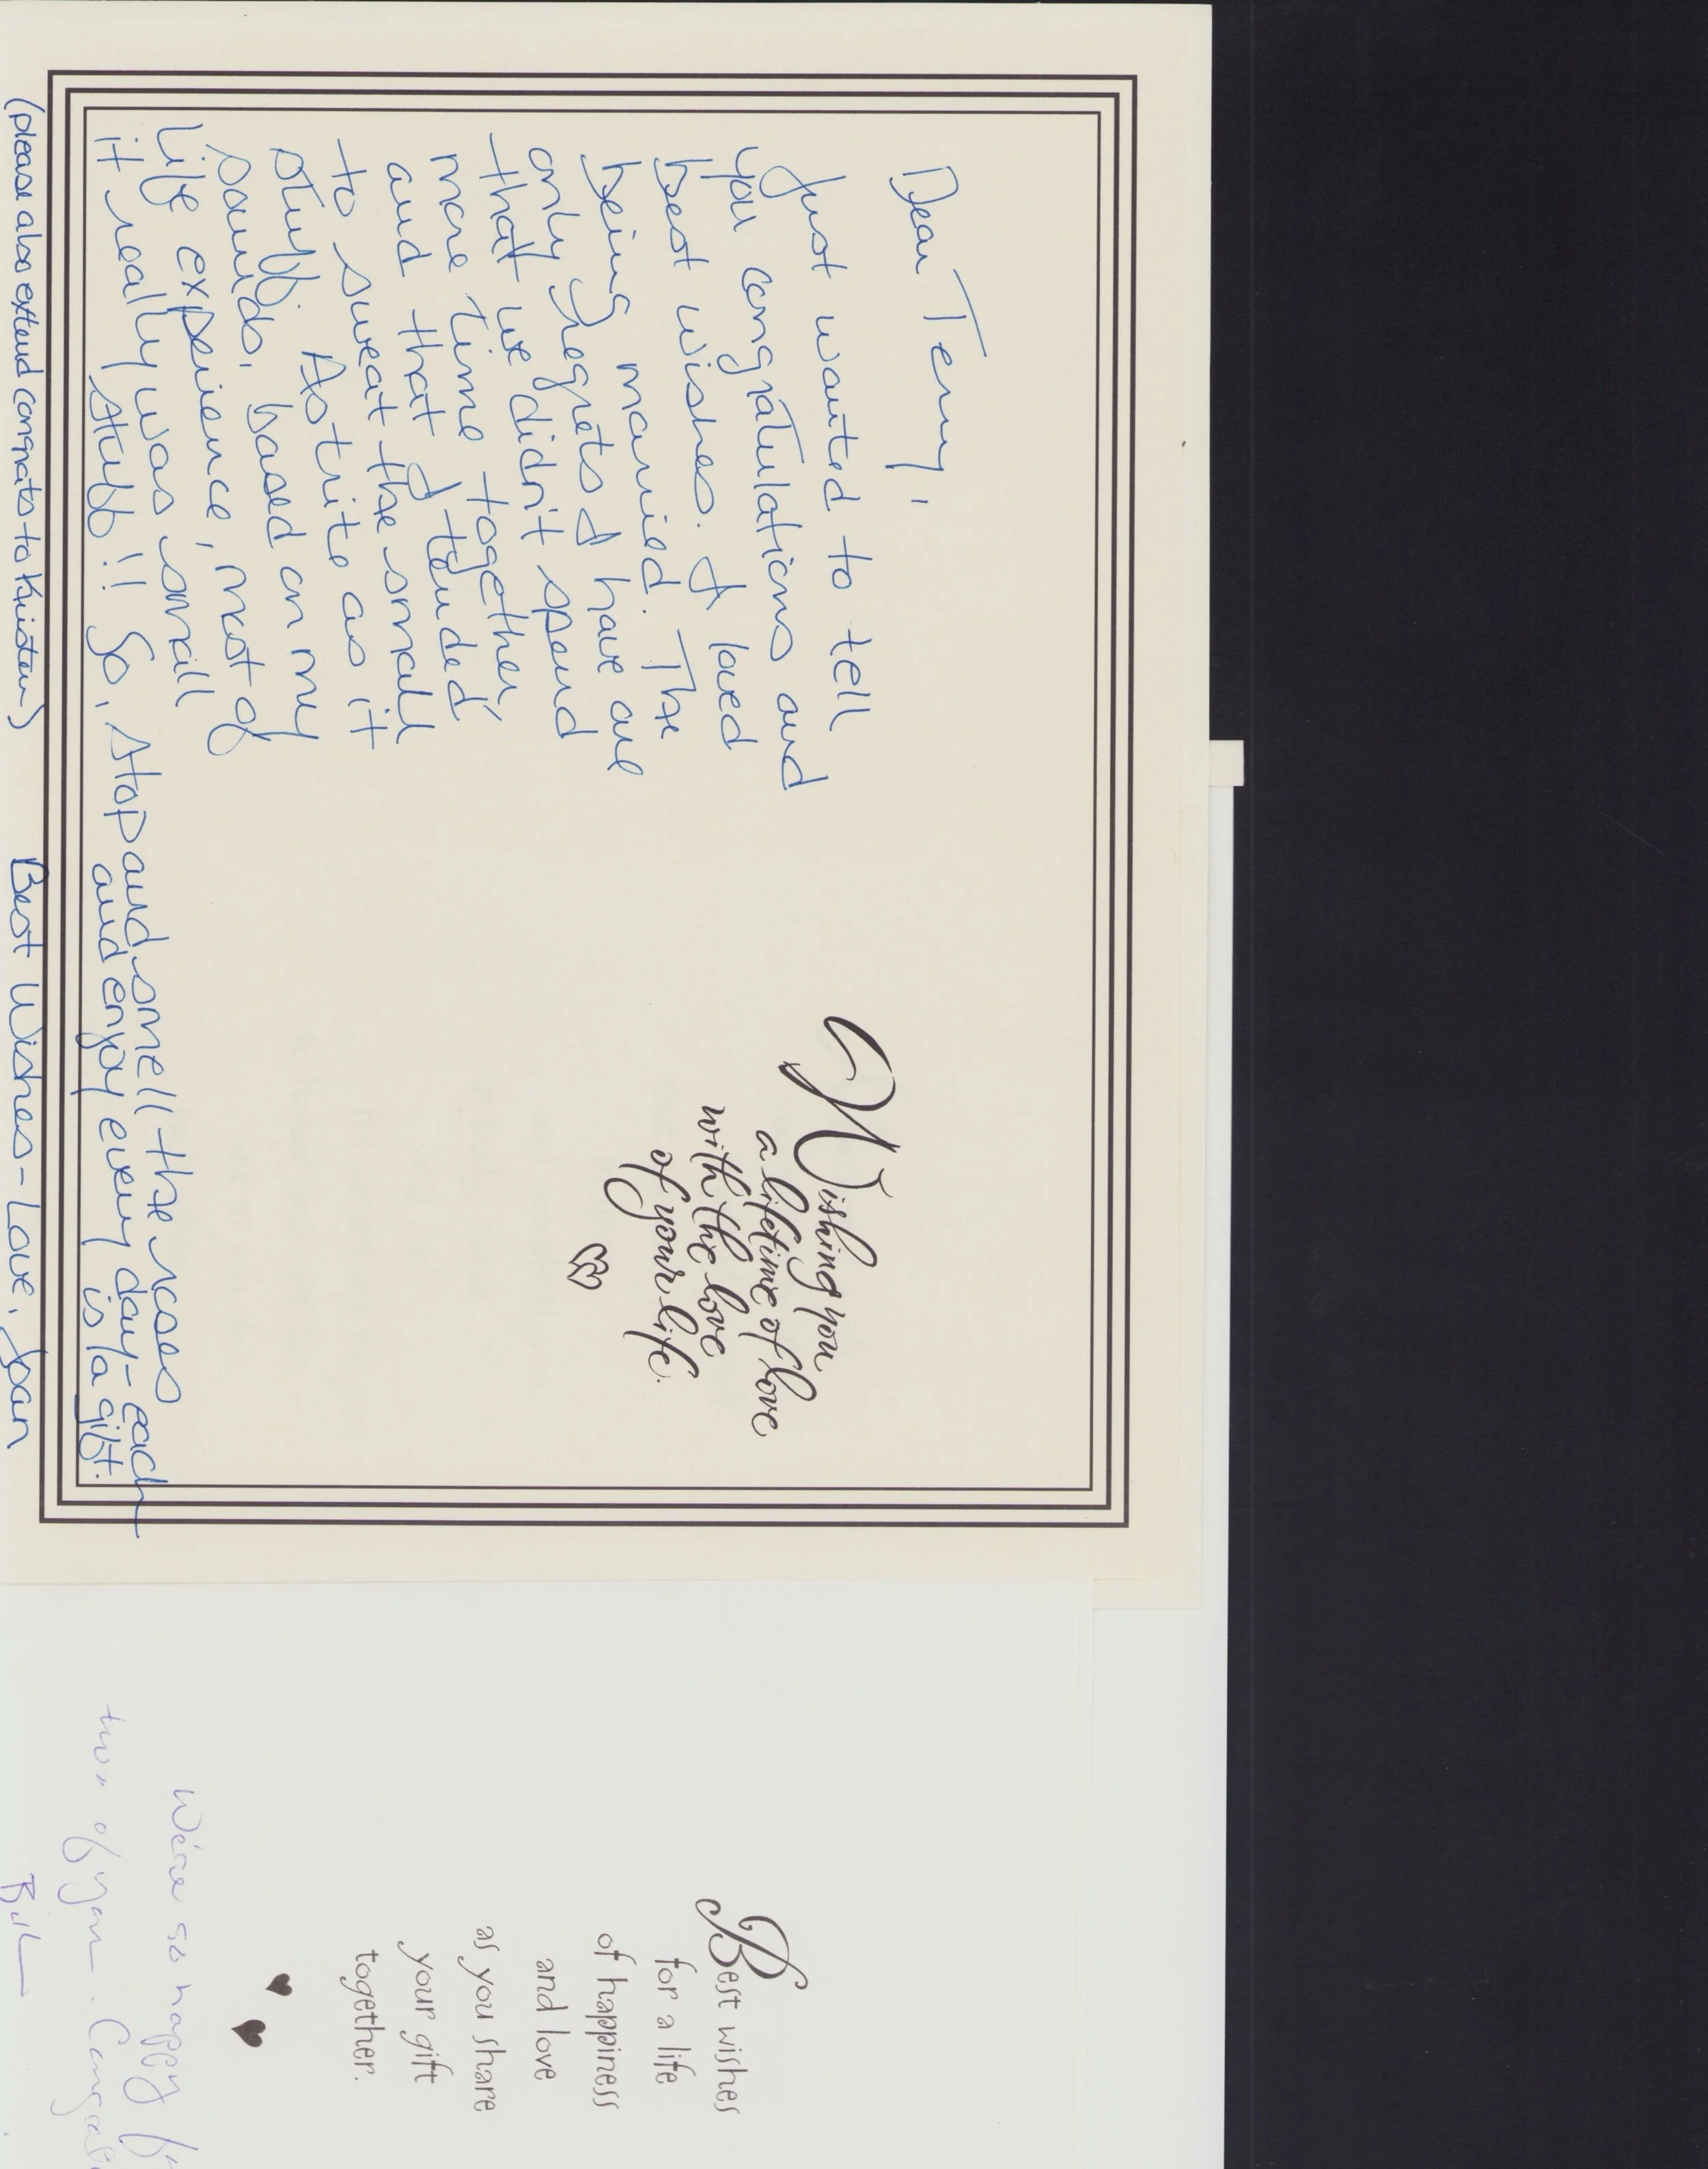 Dear Terry,
Just wanted to tell
you congratulations and
best wishes. I loved
being married. The
only regrets I have are
that we didn't spend
more time together,
and that I tended
to sweat the small
stuff. As trite as it
sounds, based on my
life experience, most of
it really was small
stuff!! So, stop and smell the roses
and enjoy every day - each
is a gift.
(please also extend congrats to Kristen)
Best Wishes - Love, Joan
Wishing you
a lifetime of love
with the love
of your life.
Best wishes
for a life
of happiness
and love
as you share
your gift
together.
We're so happy
two of you.
Bill